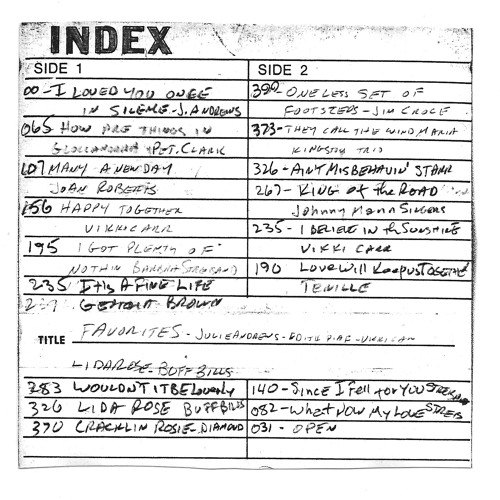 INDEX
SIDE 1
SIDE 2
00-I LOVED YOU ONCE
IN SILENCE-J. ANDREWS
065 HOW ARE THINGS IN
GLOCCAMORRA PET. CLARK
107 MANY A NEW DAY
JOAN ROBERTS
156 HAPPY TOGETHER
VIKKI CARR
195 I GOT PLENTY OF
NOTHIN BARBRA STREISAND
235 IT IS A FINE LIFE
GEORGIA BROWN
390-ONE LESS SET OF
FOOTSTEPS-JIM CROCE
373-THEY CALL THE WIND MARIA
KINGSTON TRIO
326-AIN'T MISBEHAVIN' STARR
267-KING of the ROAD
Johnny Mann Singers
235-I BELIEVE IN the SUNSHINE
VIKKI CARR
190 Love Will Keep us TOGETHER
TENILLE
TITLE FAVORITES-JULIE ANDREWS-EDITH PIAF-VIKKI CARR
LIDA ROSE-BUFF BILLS
283 WOULDN'T IT BE Loverly
326 LIDA ROSE BUFF BILLS
370 CRACKLIN ROSIE-DIAMOND
140-Since I Fell for You STREISAND
082-What NOW My LOVE STREIS
031-OPEN